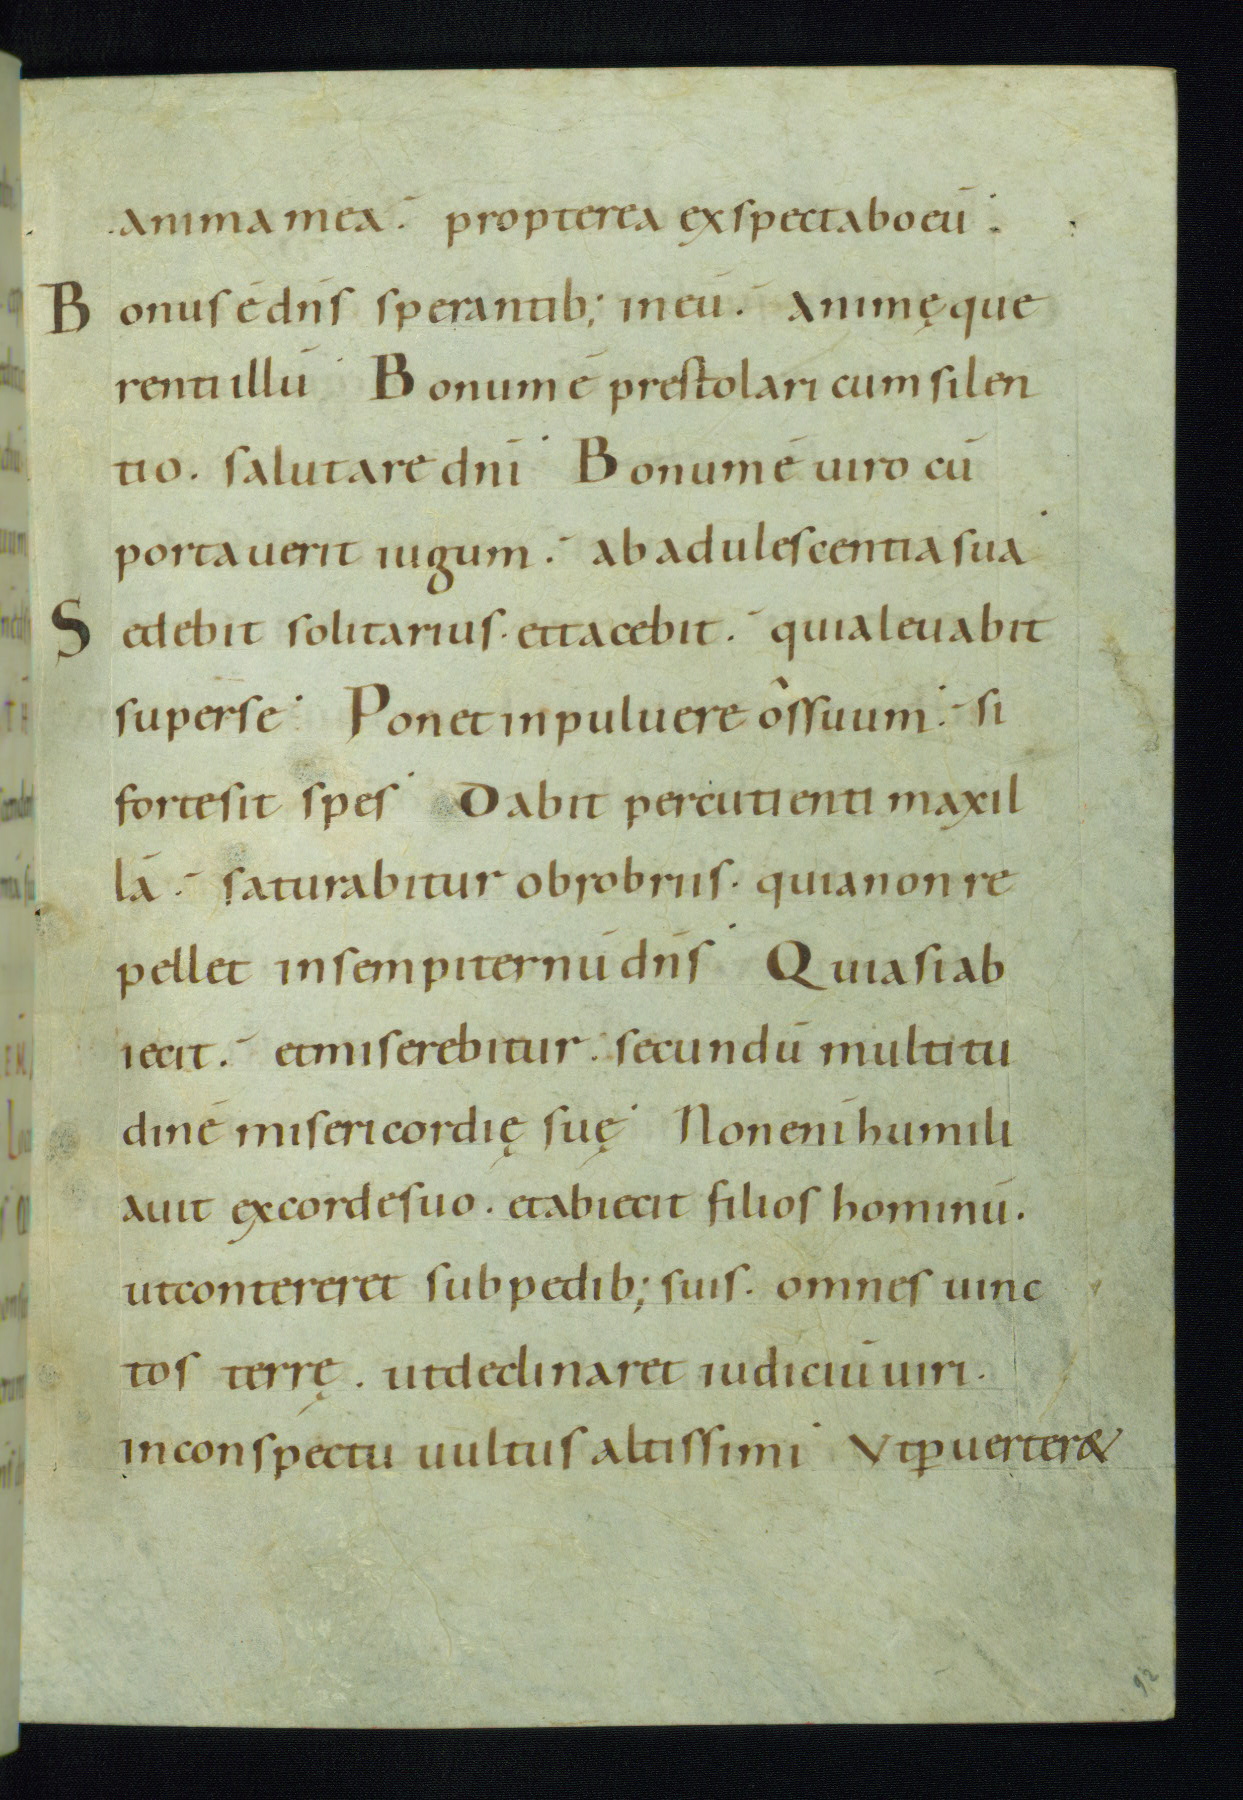 anima mea. propterea exspectabo eū.
Bonus ē dn̄s sperantib; in eū. animę que
renti illū Bonum ē prestolari cum silen
tio. salutare dn̄i Bonum ē uiro cū
portauerit iugum. ab adulescentia sua
Sedebit solitarius. et tacebit. quia leuabit
super se Ponet in puluere os suum. si
forte sit spes Dabit percutienti maxil
lā. saturabitur obrobriis. quia non re
pellet in sempiternū dn̄s Quia si ab
iecit. et miserebitur. secundū multitu
dinē misericordię suę Non enī humili
auit ex corde suo. et abiecit filios hominū.
ut contereret sub pedib; suis. omnes uinc
tos terrę. ut declinaret iudiciū uiri.
in conspectu uultus altissimi Vt ꝑuerter&
92